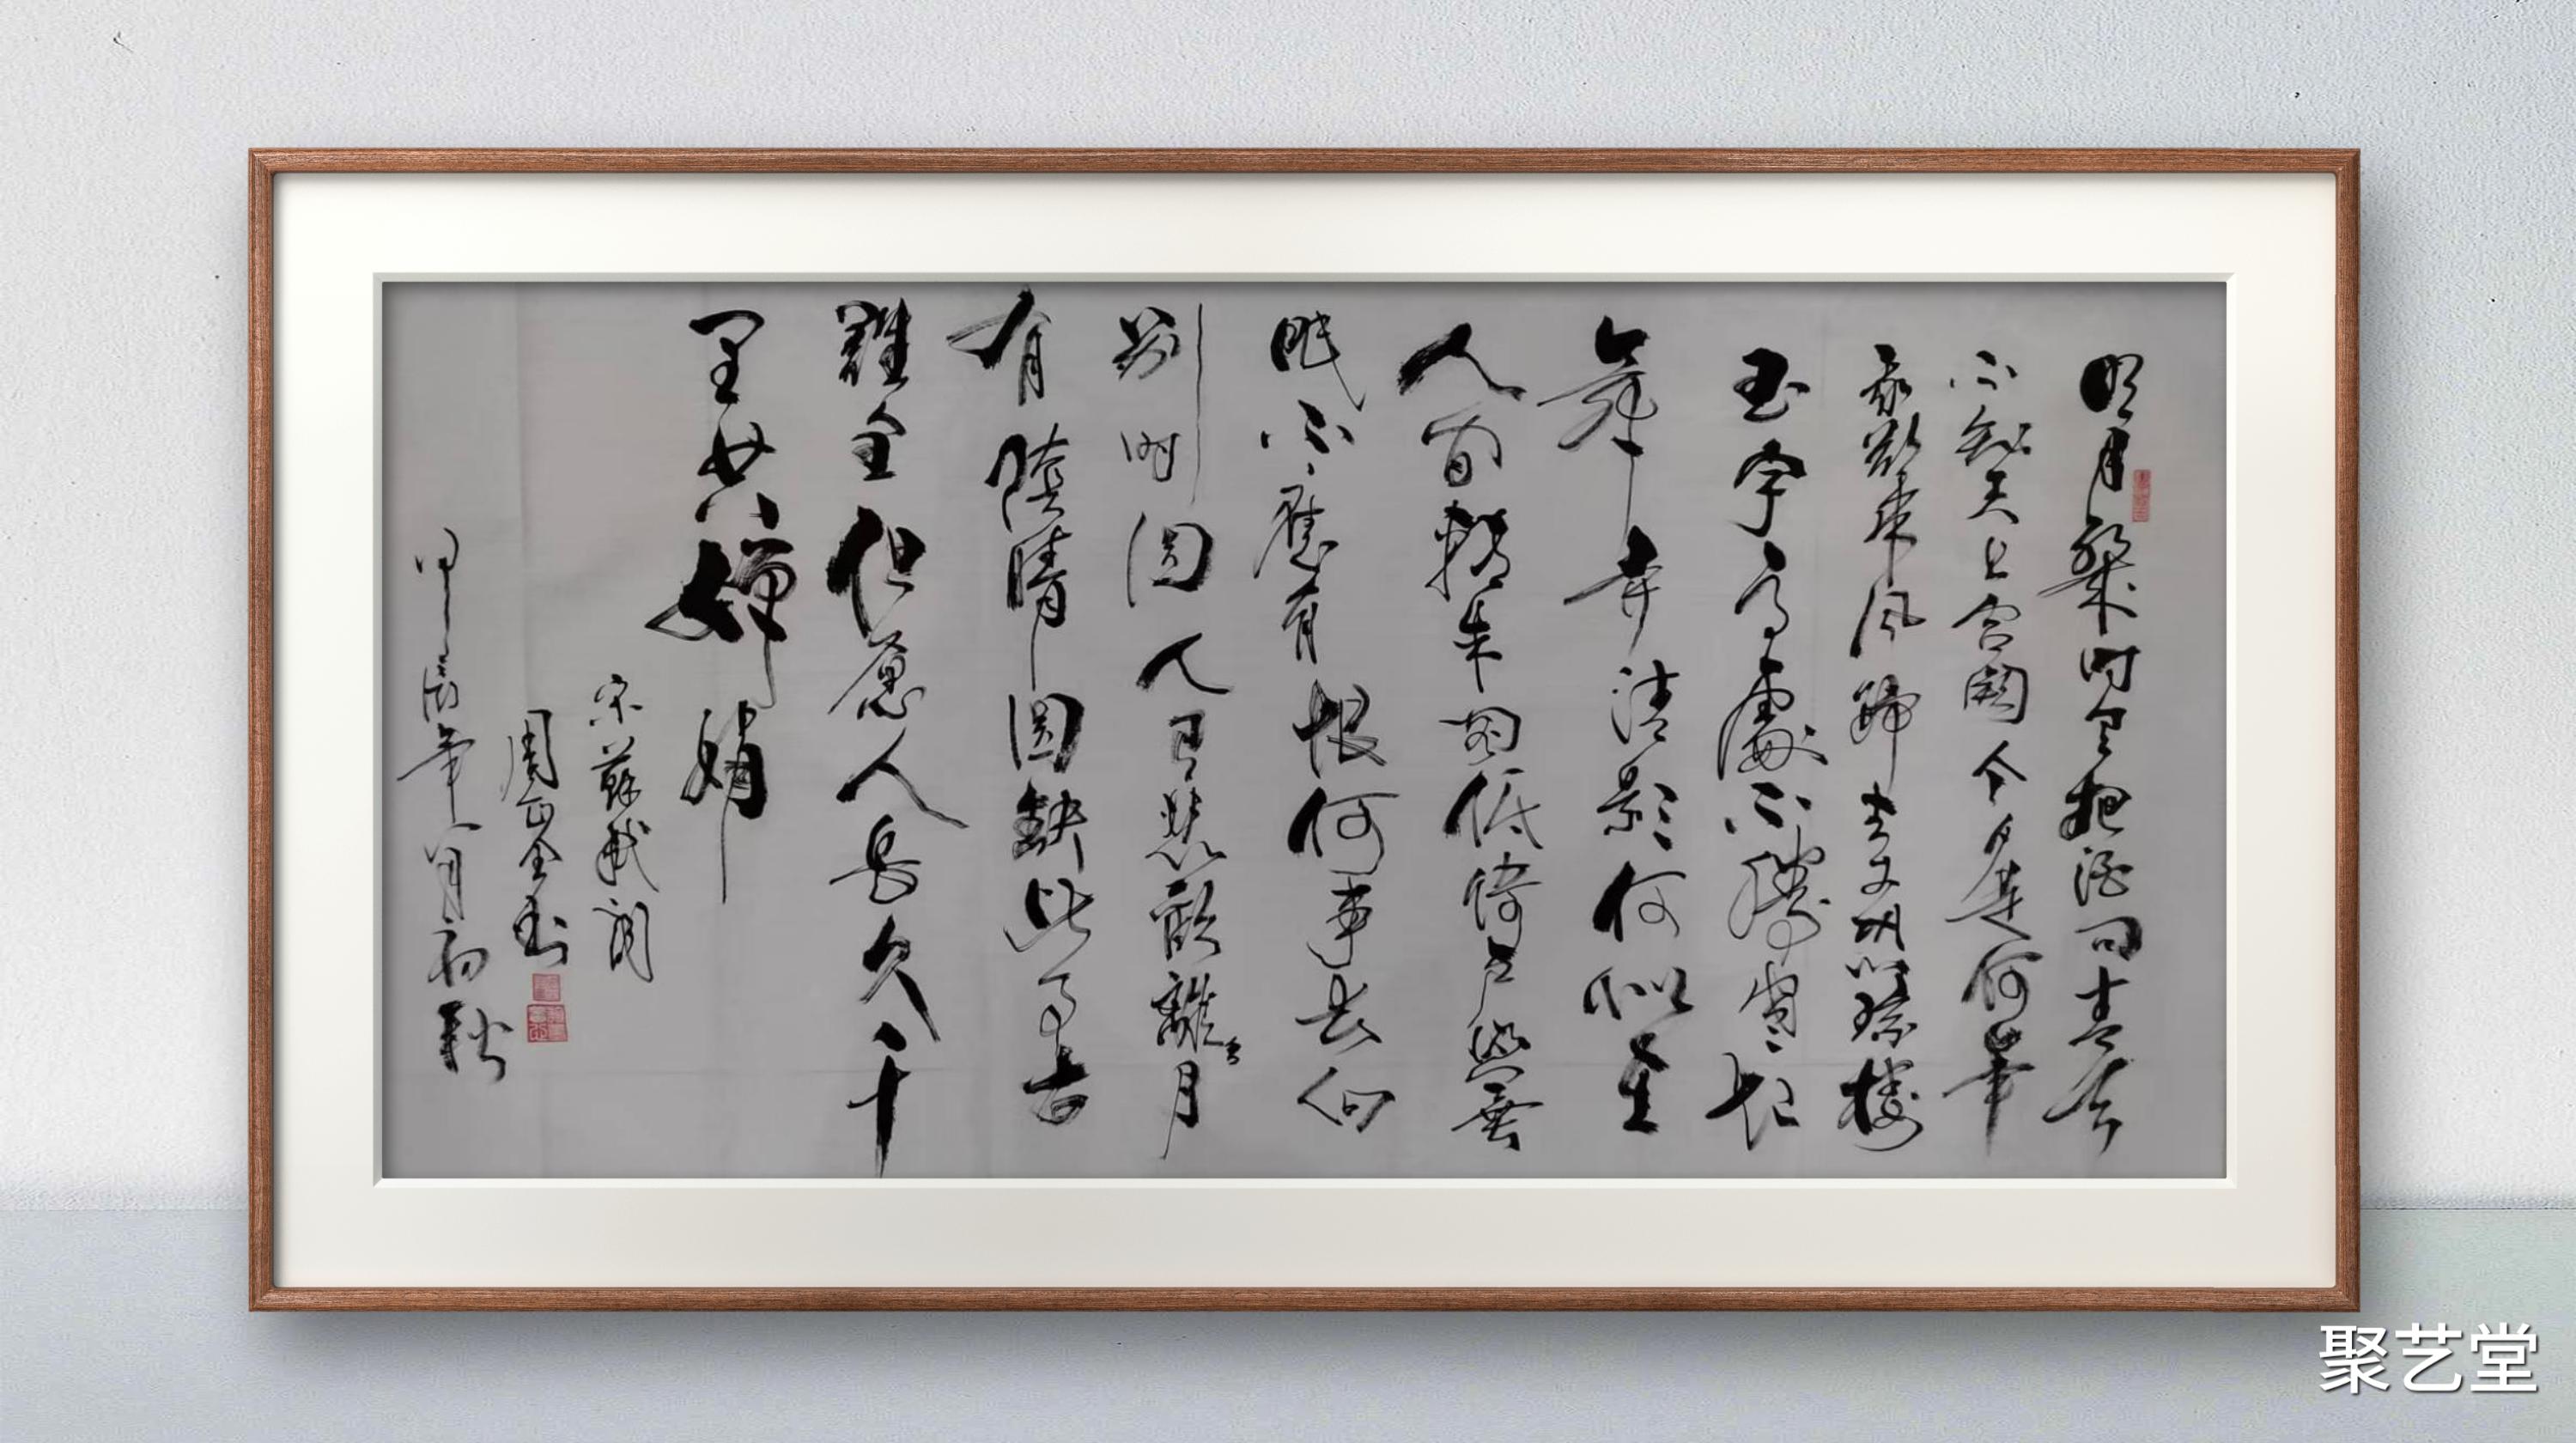 明月幾时有把酒问青天
不知天上宫阙今夕是何年
我欲乘风歸去又恐瓊樓
玉宇高處不勝寒起
舞弄清影何似在
人间轉朱阁低绮户照無
眠不應有恨何事长向
别时圆人有悲歡離合月
有陰晴圆缺此事古
難全但愿人长久千
里共嬋娟
宋蘇軾詞
周正金书
甲辰年八月初秋
聚艺堂